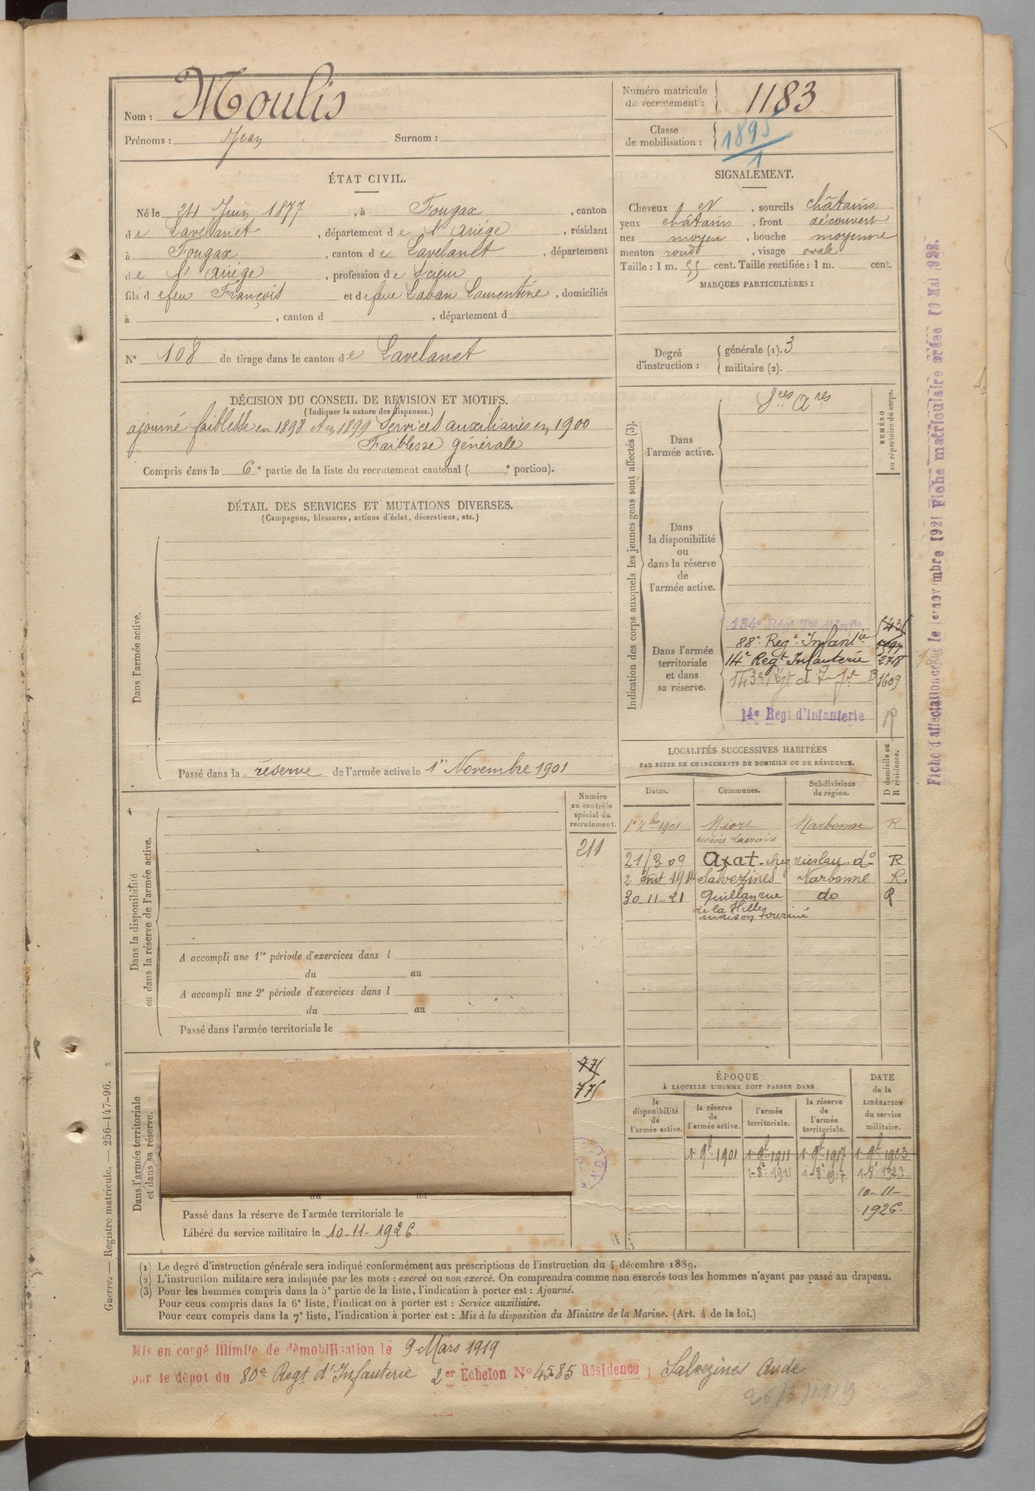 Nom : Moulis
Prénoms : Jean Surnom :
Numéro matricule du recrutement : 1183
Classe de mobilisation : 1895
1
ÉTAT CIVIL.
Né le 24 Juin 1877, à Fougax, canton
de Lavelanet, département de l'Ariège, résidant
à Fougax, canton de Lavelanet, département
de l'Ariège, profession de
fils de feu François et de feue Laban Laurentine, domiciliés
à , canton d , département d
N° 108 de tirage dans le canton de Lavelanet
SIGNALEMENT.
Cheveux N, sourcils châtains
yeux châtains, front découvert
nez moyen, bouche moyenne
menton rond, visage ovale
Taille : 1 m. 55 cent. Taille rectifiée : 1 m. cent.
MARQUES PARTICULIÈRES :
Degré d'instruction : générale (1). 3
militaire (2).
DÉCISION DU CONSEIL DE REVISION ET MOTIFS.
(Indiquer la nature des dispenses.)
ajourné faiblesse en 1898 et en 1899 Services auxiliaires en 1900
Faiblesse générale
Compris dans la 6e partie de la liste du recrutement cantonal ( e portion).
DÉTAIL DES SERVICES ET MUTATIONS DIVERSES.
(Campagnes, blessures, actions d'éclat, décorations, etc.)
Dans l'armée active.
Passé dans la réserve de l'armée active le 1er Novembre 1901
Indication des corps auxquels les jeunes gens sont affectés (3).
NUMÉRO au répertoire du corps.
Dans l'armée active.
Sces Ares
Dans la disponibilité ou dans la réserve de l'armée active.
Dans l'armée territoriale et dans sa réserve.
88e Regt Infanterie
14e Regt Infanterie 2718
143e 1609
14e Regt d'Infanterie R
LOCALITÉS SUCCESSIVES HABITÉES
PAR SUITE DE CHANGEMENTS DE DOMICILE OU DE RÉSIDENCE.
D domicile ou R résidence.
Dates. Communes. Subdivisions de région.
1901 Narbonne R
21/3 09 Axat do R
2 1914 Salvezines Narbonne R
30-11-21 Quillan rue do R
de la
maison
Numéro au contrôle spécial du recrutement.
211
Dans la disponibilité ou dans la réserve de l'armée active.
A accompli une 1re période d'exercices dans l
du au
A accompli une 2e période d'exercices dans l
du au
Passé dans l'armée territoriale le
Dans l'armée territoriale et dans sa réserve.
Passé dans la réserve de l'armée territoriale le
Libéré du service militaire le 10-11-1926
ÉPOQUE
À LAQUELLE L'HOMME DOIT PASSER DANS
la disponibilité de l'armée active. la réserve de l'armée active. l'armée territoriale. la réserve de l'armée territoriale.
DATE de la LIBÉRATION du service militaire.
1-9bre 1901 1-9bre 1911 1-9bre 1917 1-9bre 1923
10-11-
1926.
(1) Le degré d'instruction générale sera indiqué conformément aux prescriptions de l'instruction du 4 décembre 1889.
(2) L'instruction militaire sera indiquée par les mots : exercé ou non exercé. On comprendra comme non exercés tous les hommes n'ayant pas passé au drapeau.
(3) Pour les hommes compris dans la 5e partie de la liste, l'indication à porter est : Ajourné.
Pour ceux compris dans la 6e liste, l'indication à porter est : Service auxiliaire.
Pour ceux compris dans la 7e liste, l'indication à porter est : Mis à la disposition du Ministre de la Marine. (Art. 4 de la loi.)
Mis en congé illimité de démobilisation le 9 Mars 1919
par le dépot du 80e Regt d'Infanterie 2er Echelon N° 4585 Résidence : Salvezines Aude
Guerre. — Registre matricule. — 256-147-96.